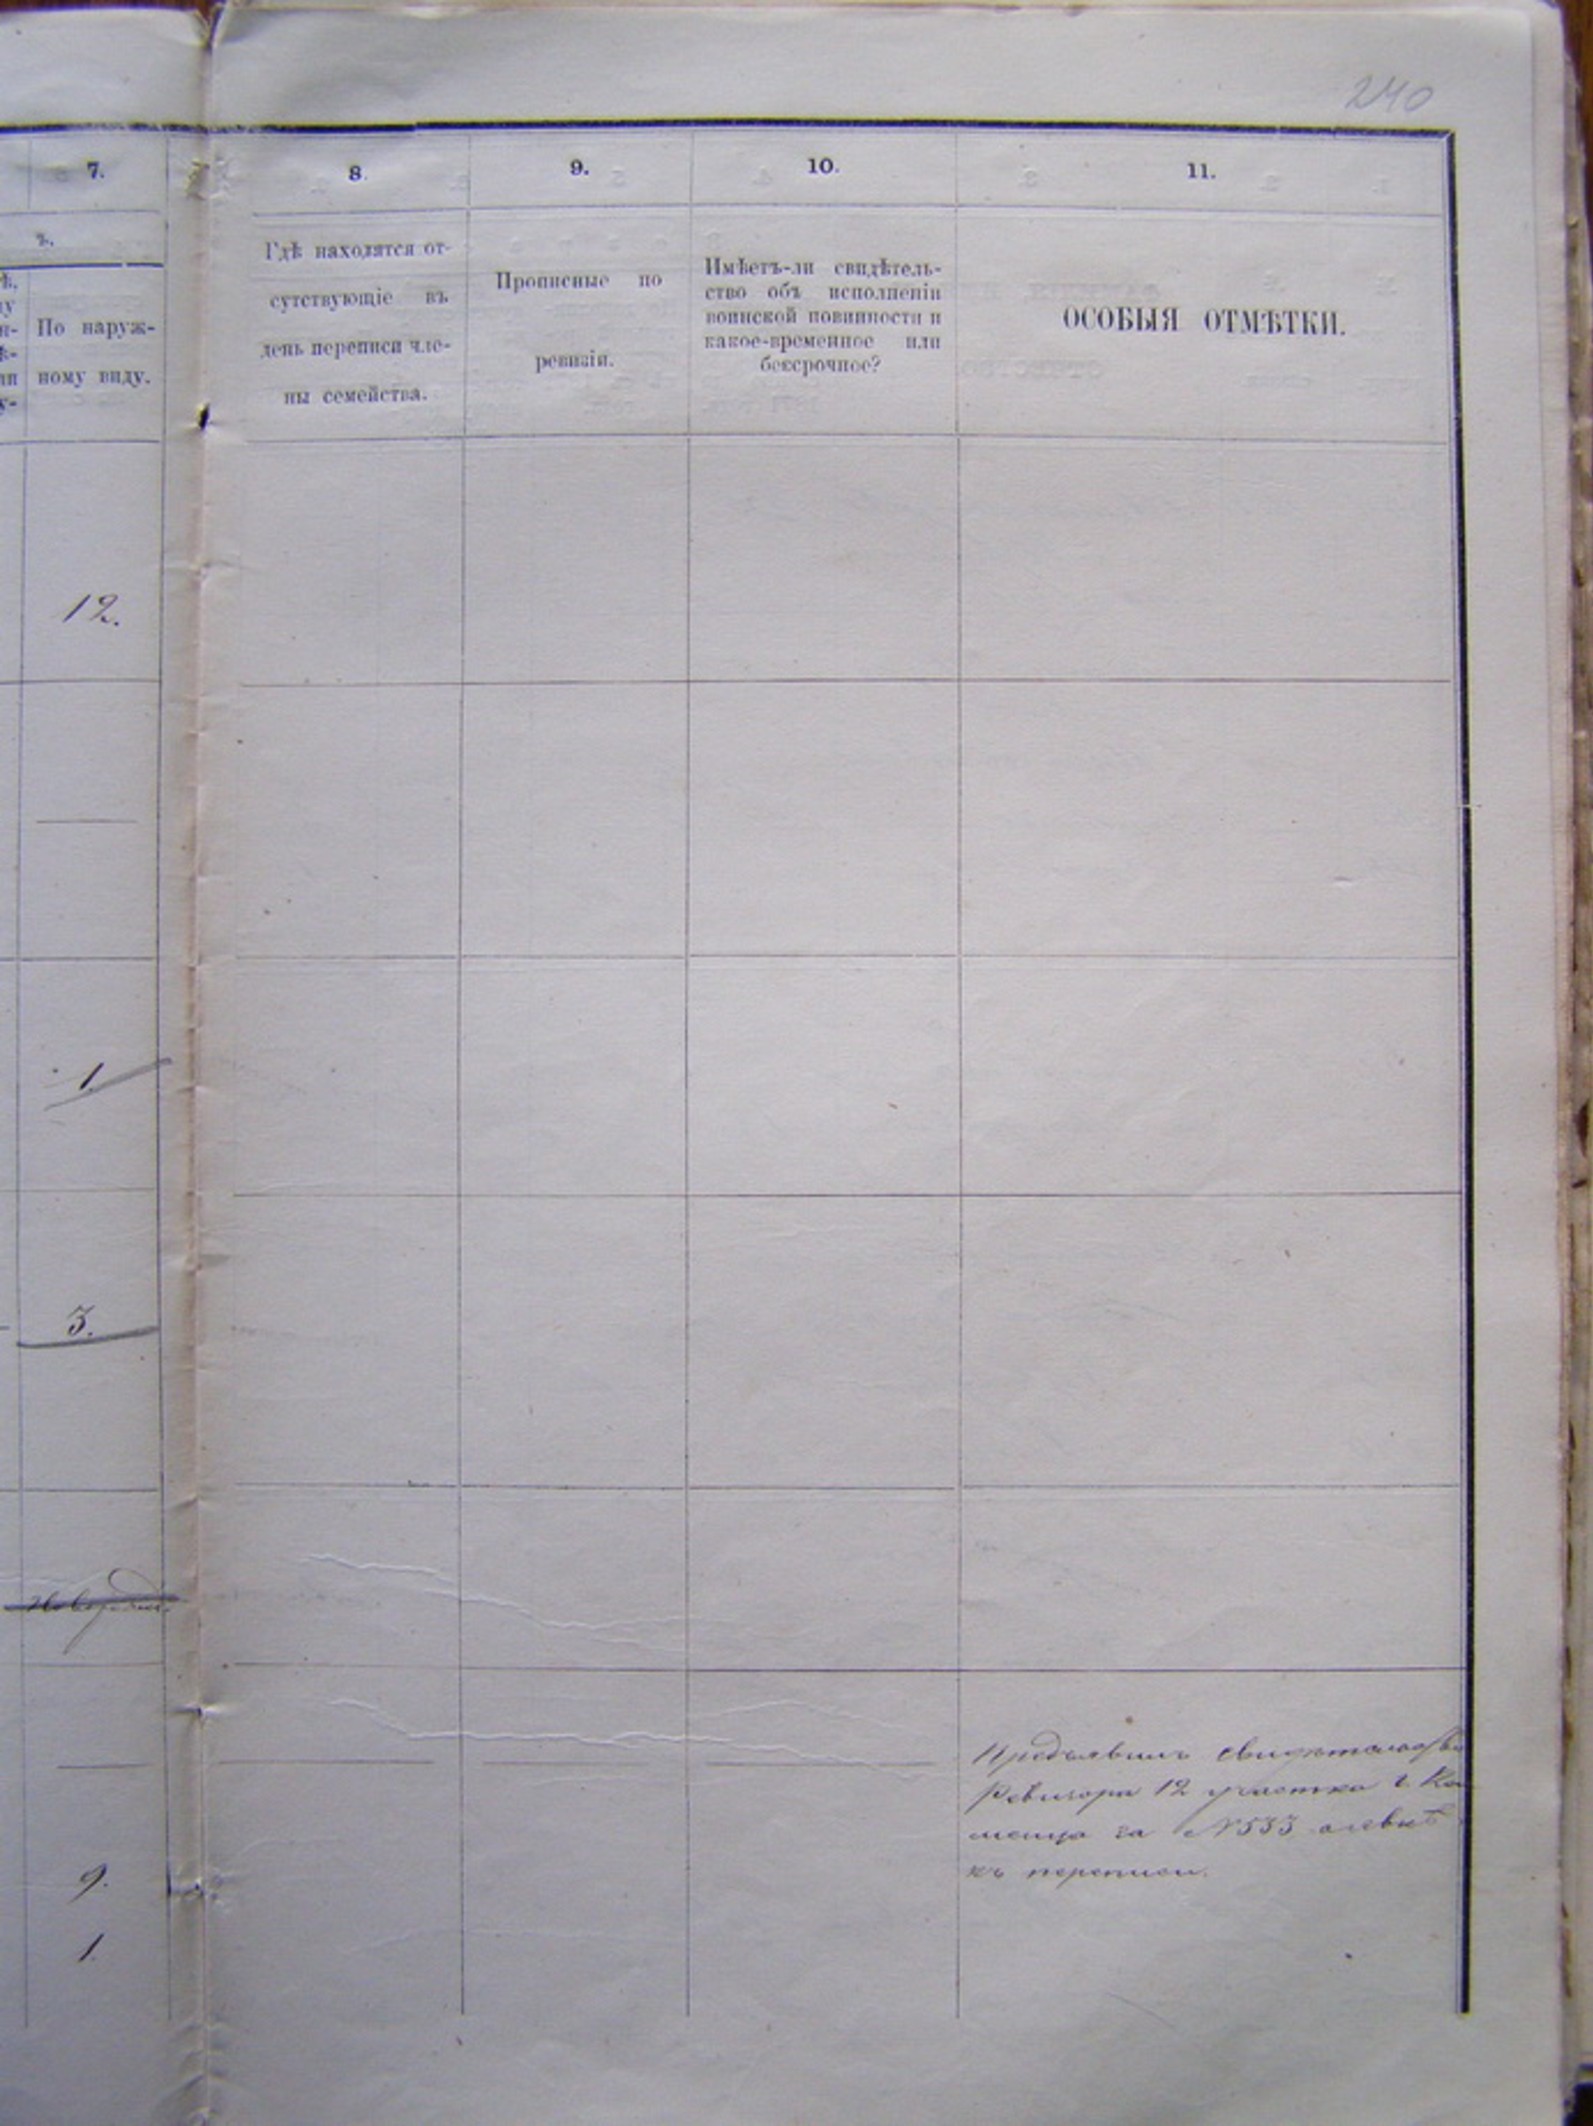 240
7.
8.
9.
10.
11.
ъ.
По наруж-
ному виду.
Гдѣ находятся от-
сутствующіе въ
день переписи чле-
ны семейства.
Прописные по
ревизіи.
Имѣетъ-ли свидѣтель-
ство объ исполненіи
воинской повинности и
какое-временное или
безсрочное?
ОСОБЫЯ ОТМѢТКИ.
12.
1
3.
Предъявилъ свидѣтельство
Ревизора 12 участка г. Ка
менца за №533 о
къ переписи.
9.
1.